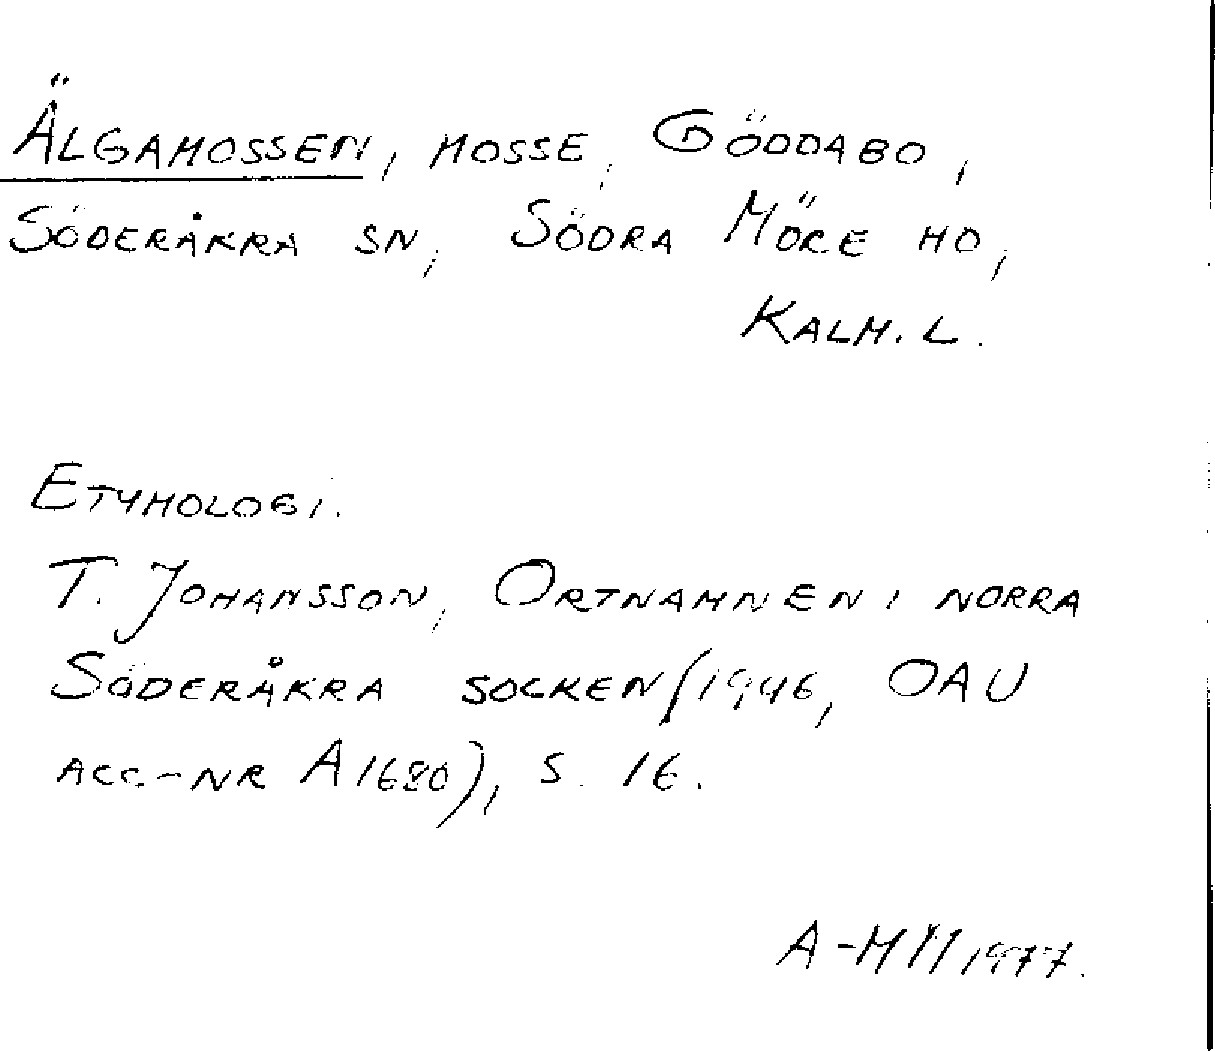 ÄLGAMOSSEN, MOSSE, GÖDDABO,
SÖDERÅKRA SN, SÖDRA MÖRE HD,
KALM. L.
ETYMOLOGI.
T. JOHANSSON, ORTNAMNEN I NORRA
SÖDERÅKRA SOCKEN (1946, OAU
ACC-NR A1680), S. 16.
A-M Ÿ 1977.